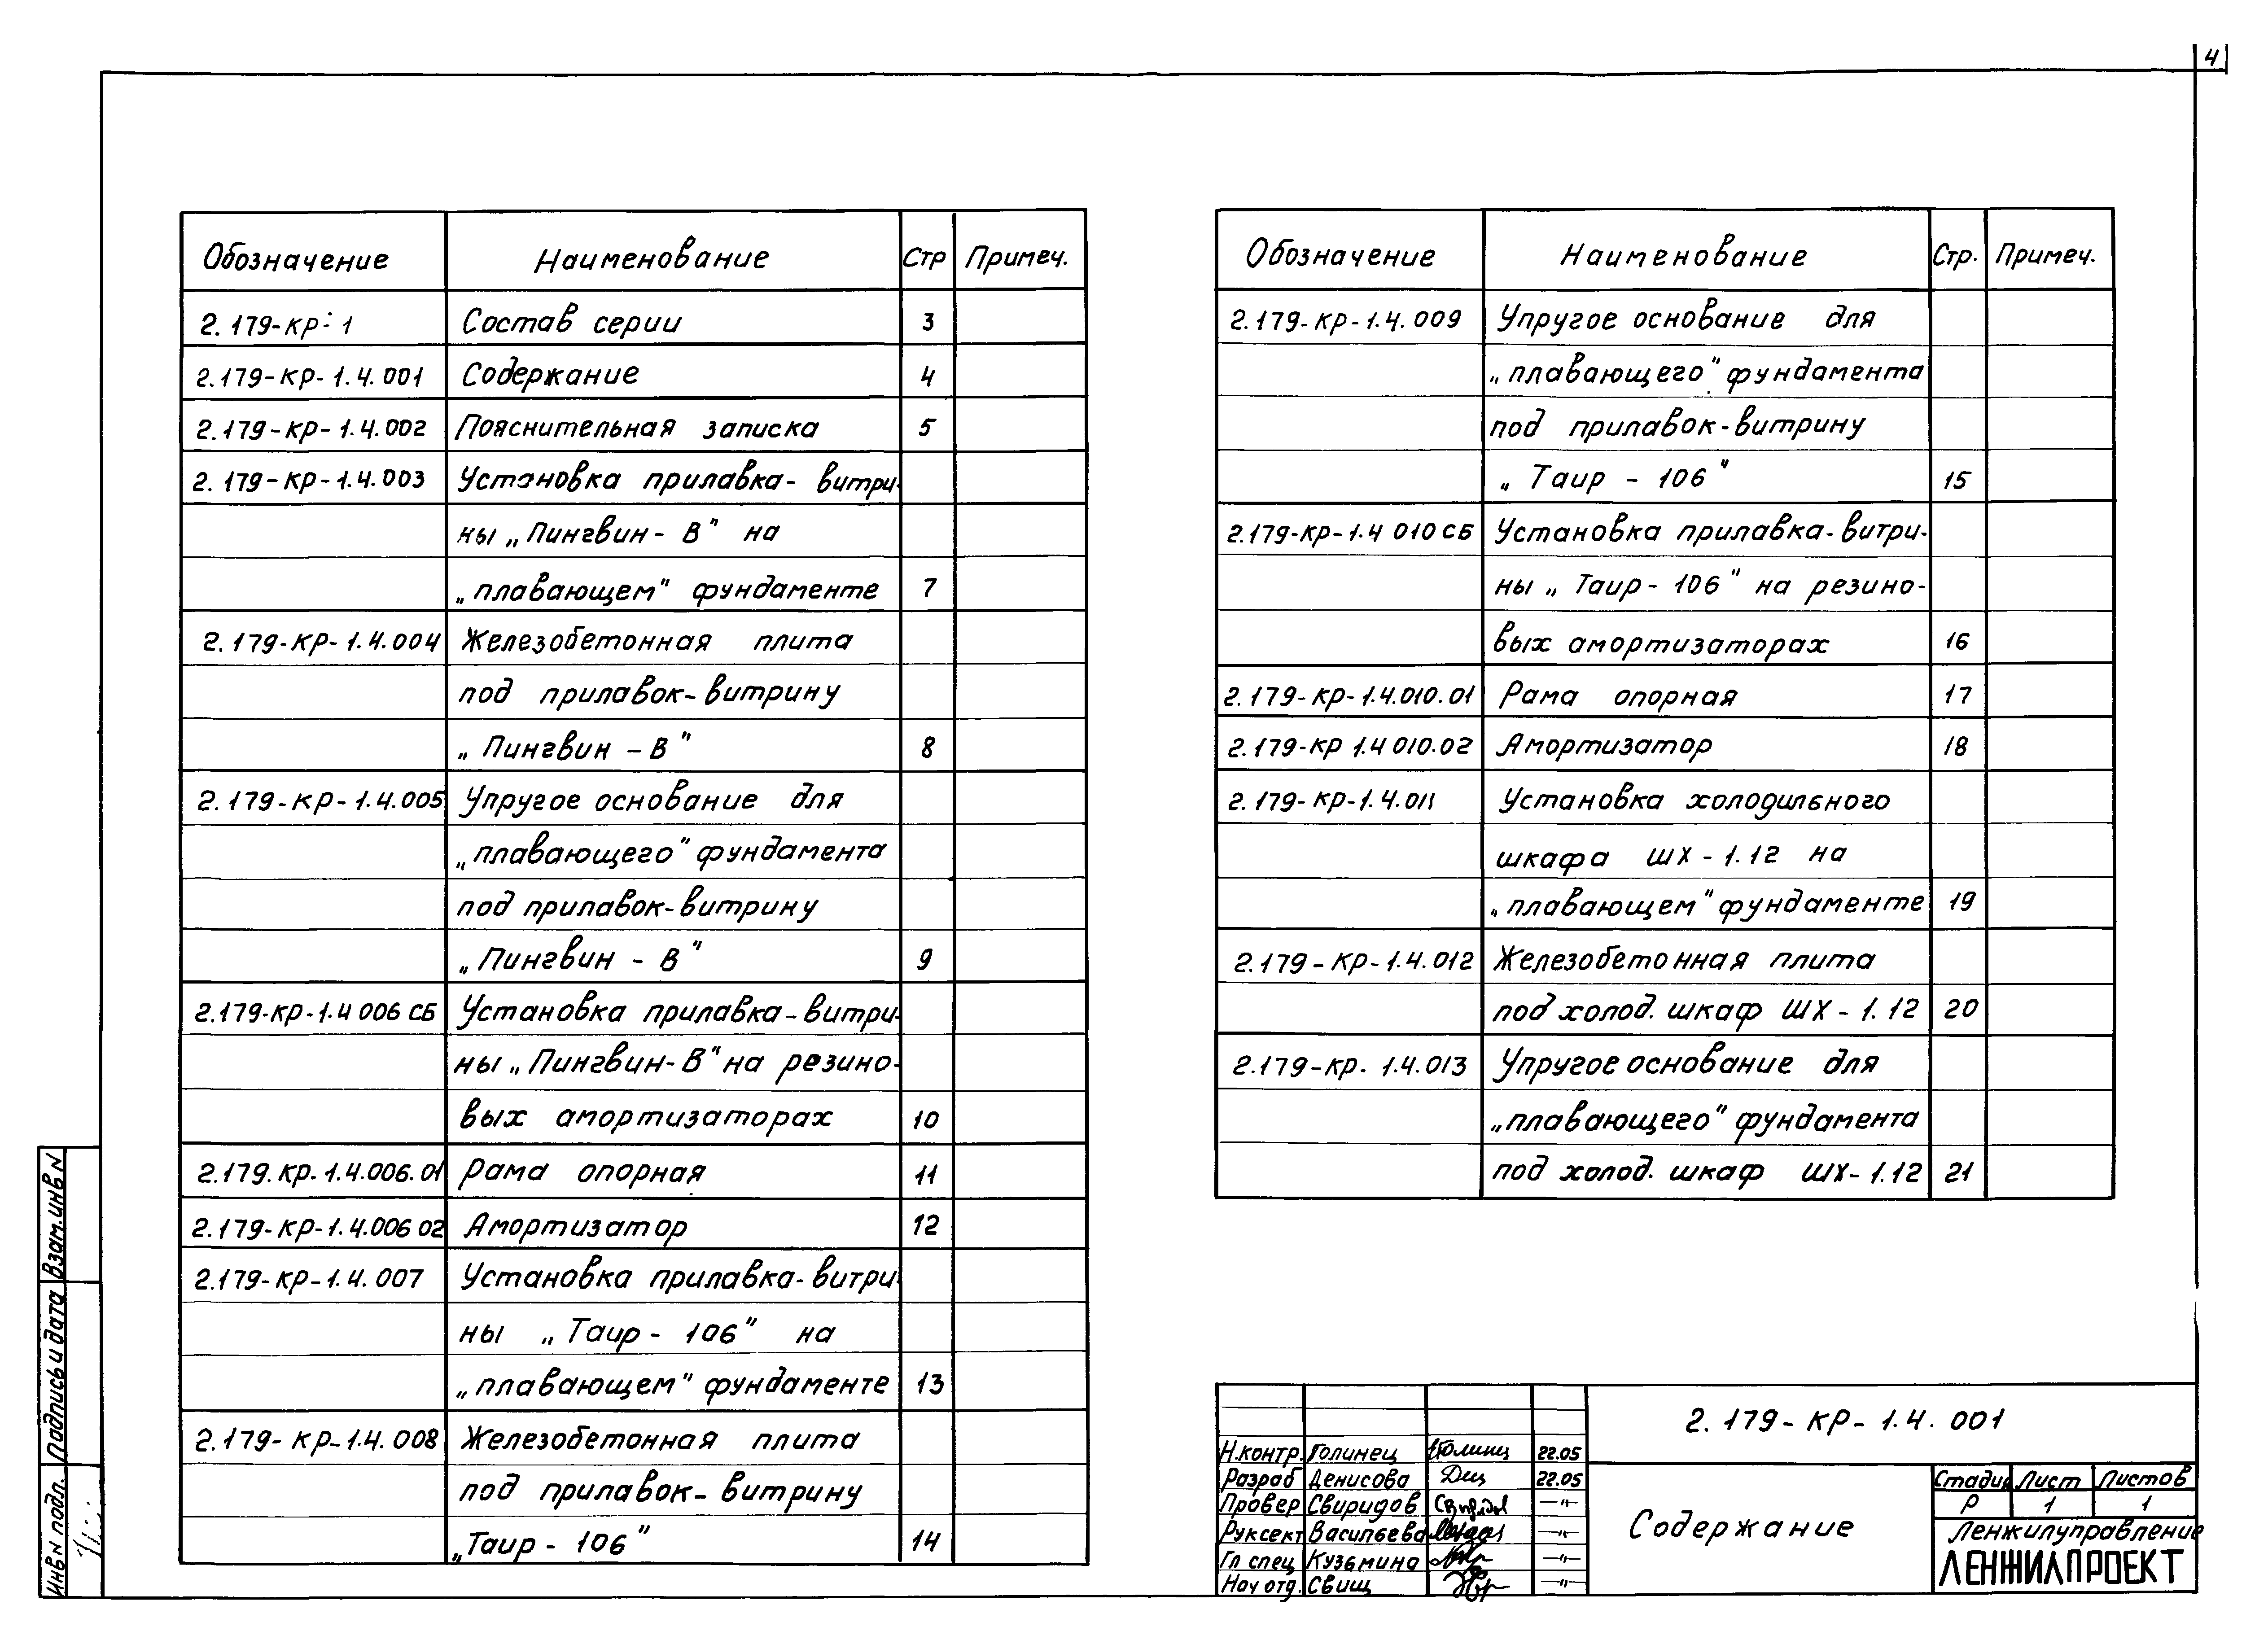 4
Обозначение Наименование Стр Примеч.
2.179-КР-1 Состав серии 3
2.179-КР-1.4.001 Содержание 4
2.179-КР-1.4.002 Пояснительная записка 5
2.179-КР-1.4.003 Установка прилавка-витри-
ны „Пингвин-В" на
„плавающем" фундаменте 7
2.179-КР-1.4.004 Железобетонная плита
под прилавок-витрину
„Пингвин-В" 8
2.179-КР-1.4.005 Упругое основание для
„плавающего" фундамента
под прилавок-витрину
„Пингвин-В" 9
2.179-КР-1.4 006 СБ Установка прилавка-витри-
ны „Пингвин-В" на резино-
вых амортизаторах 10
2.179.КР-1.4.006.01 Рама опорная 11
2.179-КР-1.4.006 02 Амортизатор 12
2.179-КР-1.4.007 Установка прилавка-витри-
ны „Таир-106" на
„плавающем" фундаменте 13
2.179-КР-1.4.008 Железобетонная плита
под прилавок-витрину
„Таир-106" 14
Обозначение Наименование Стр. Примеч.
2.179-КР-1.4.009 Упругое основание для
„плавающего" фундамента
под прилавок-витрину
„Таир-106" 15
2.179-КР-1.4 010 СБ Установка прилавка-витри-
ны „Таир-106" на резино-
вых амортизаторах 16
2.179-КР-1.4.010.01 Рама опорная 17
2.179-КР 1.4 010.02 Амортизатор 18
2.179-КР-1.4.011 Установка холодильного
шкафа ШХ-1.12 на
„плавающем" фундаменте 19
2.179-КР-1.4.012 Железобетонная плита
под холод. шкаф ШХ-1.12 20
2.179-КР. 1.4.013 Упругое основание для
„плавающего" фундамента
под холод. шкаф ШХ-1.12 21
Взам.инв N
Подпись и дата
Инв N подл.
2.179-КР-1.4.001
Н.контр. Голинец Голинец 22.05
Разраб Денисова 22.05
Провер Свиридов Свиридов —"—
Рук сект Васильева —"—
Гл спец Кузьмина —"—
Нач отд. Свищ —"—
Содержание
Стадия Лист Листов
Р 1 1
Ленжилуправление
ЛЕНЖИЛПРОЕКТ